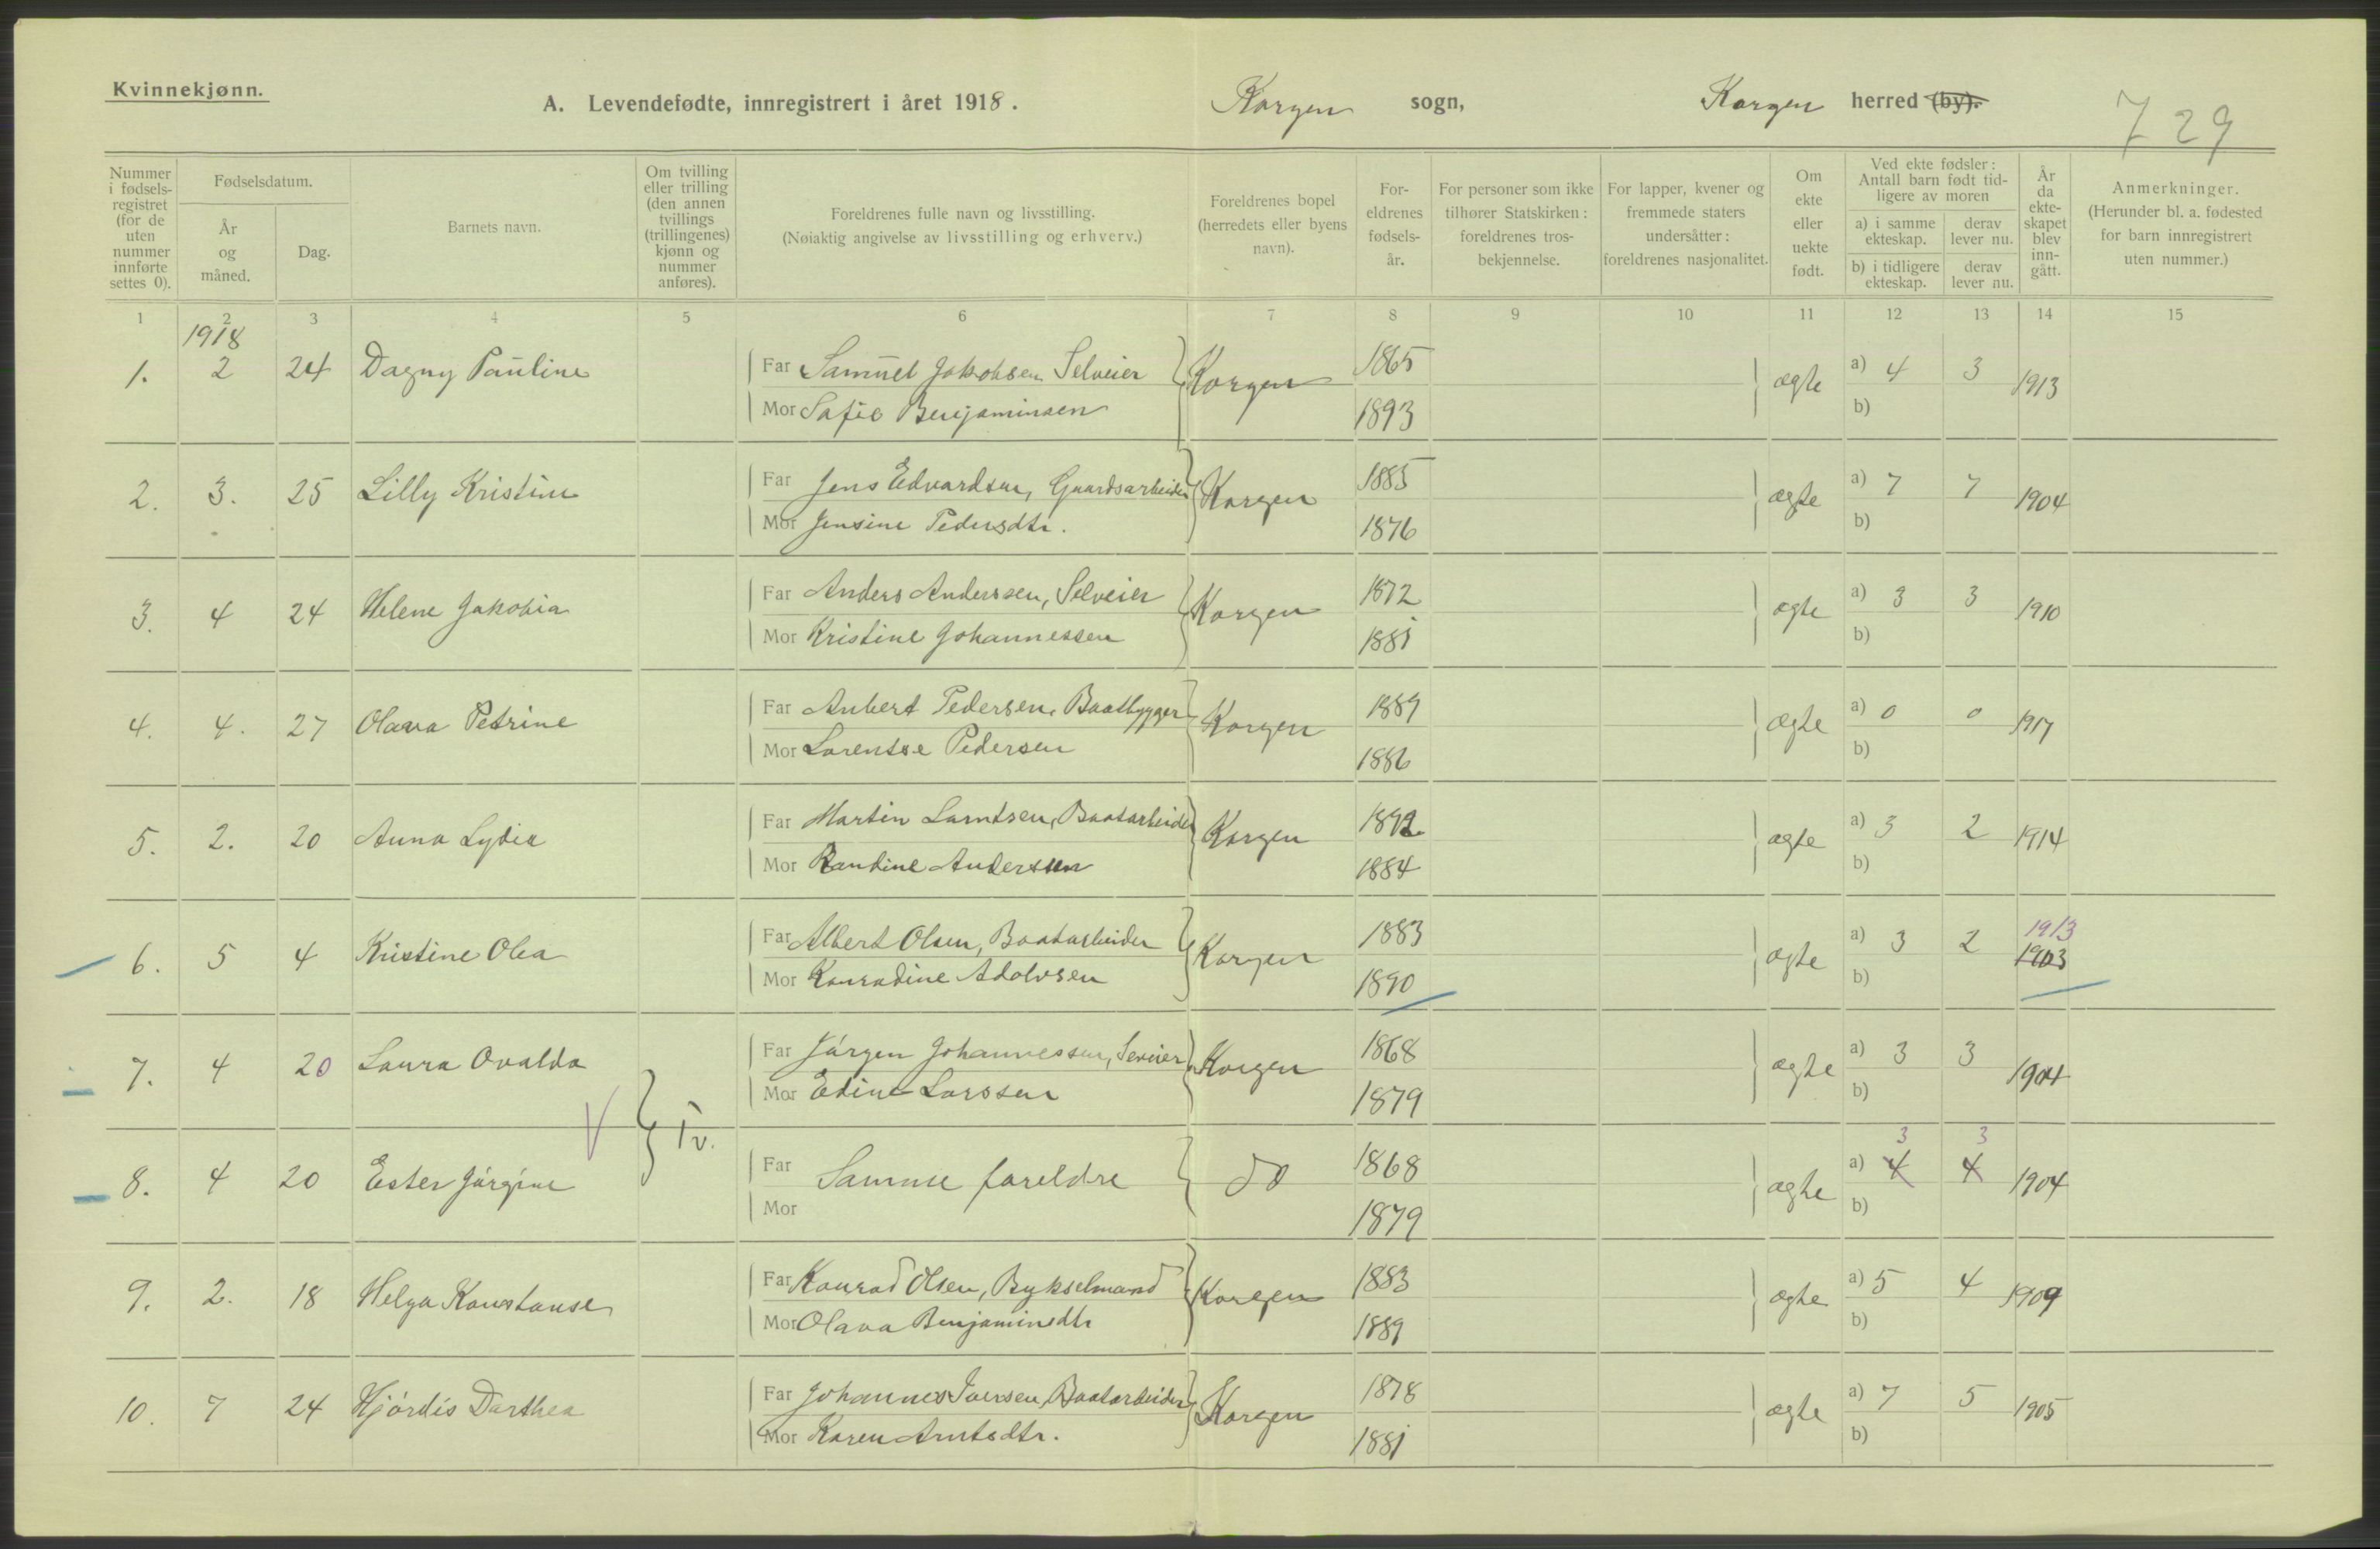 Kvinnekjønn.
A. Levendefødte, innregistrert i året 1918. Korgen sogn, Korgen herred (by).
729
Nummer i fødsels-registret (for de uten nummer innførte settes 0).
Fødselsdatum.
År og måned.
Dag.
Barnets navn.
Om tvilling eller trilling (den annen tvillings (trillingenes) kjønn og nummer anføres).
Foreldrenes fulle navn og livsstilling.
(Nøiaktig angivelse av livsstilling og erhverv.)
Foreldrenes bopel (herredets eller byens navn).
For-eldrenes fødsels-år.
For personer som ikke tilhører Statskirken: foreldrenes tros-bekjennelse.
For lapper, kvener og fremmede staters undersåtter: foreldrenes nasjonalitet.
Om ekte eller uekte født.
Ved ekte fødsler: Antall barn født tid-ligere av moren
a) i samme ekteskap. derav lever nu.
b) i tidligere ekteskap. derav lever nu.
År da ekte-skapet blev inn-gått.
Anmerkninger.
(Herunder bl. a. fødested for barn innregistrert uten nummer.)
1 2 3 4 5 6 7 8 9 10 11 12 13 14 15
1918
1. 2 24 Dagny Pauline Far Samuel Jakobsen Selveier Korgen 1865 ægte a) 4 3 1913
Mor Safie Benjaminsen 1893 b)
2. 3. 25 Lilly Kristine Far Jens Edvardsen, Gaardsarbeider Korgen 1885 ægte a) 7 7 1904
Mor Jensine Pedersdtr. 1876 b)
3. 4 24 Helene Jakobia Far Anders Anderssen, Selveier Korgen 1872 ægte a) 3 3 1910
Mor Kristine Johannessen 1881 b)
4. 4. 27 Olava Petrine Far Anbert Pedersen, Baatbygger Korgen 1889 ægte a) 0 0 1917
Mor Lorentse Pedersen 1886 b)
5. 2. 20 Anna Lydia Far Martin Larntsen, Baatarbeider Korgen 1892 ægte a) 3 2 1914
Mor Randine Anderssen 1884 b)
6. 5 4 Kristine Olea Far Albert Olsen, Baatarbeider Korgen 1883 ægte a) 3 2 1913 1903
Mor Konradine Adolvsen 1890 b)
7. 4 20 Laura Ovalda Far Jørgen Johannessen, Seveier Korgen 1868 ægte a) 3 3 1904
Mor Edine Larssen 1879 b)
Tv.
8. 4 20 Ester Jørgine Far Samme foreldre do 1868 ægte a) 4 3 4 3 1904
Mor 1879 b)
9. 2. 18 Helga Konstanse Far Konrad Olsen, Bykselmand Korgen 1883 ægte a) 5 4 1909
Mor Olava Benjaminsdtr 1889 b)
10. 7 24 Hjørdis Darthea Far Johannes Iversen, Baatarbeider Korgen 1878 ægte a) 7 5 1905
Mor Karen Arntsdtr. 1881 b)